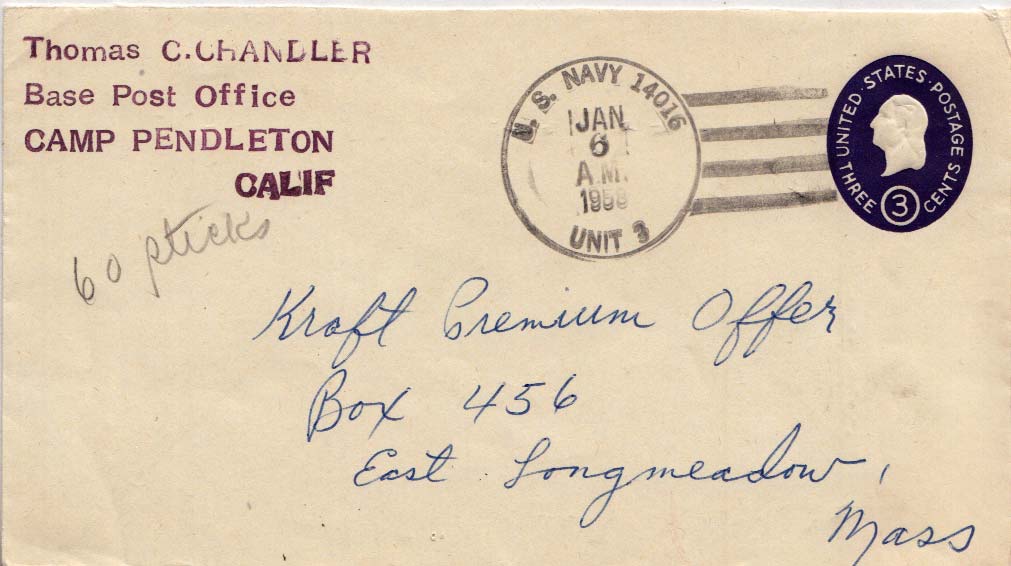 Thomas C. CHANDLER
Base Post Office
CAMP PENDLETON
CALIF
60 sticks
U. S. NAVY 14016
JAN
6
A.M.
UNIT 3
UNITED STATES POSTAGE
THREE 3 CENTS
Kraft Premium Offer
Box 456
East Longmeadow,
Mass